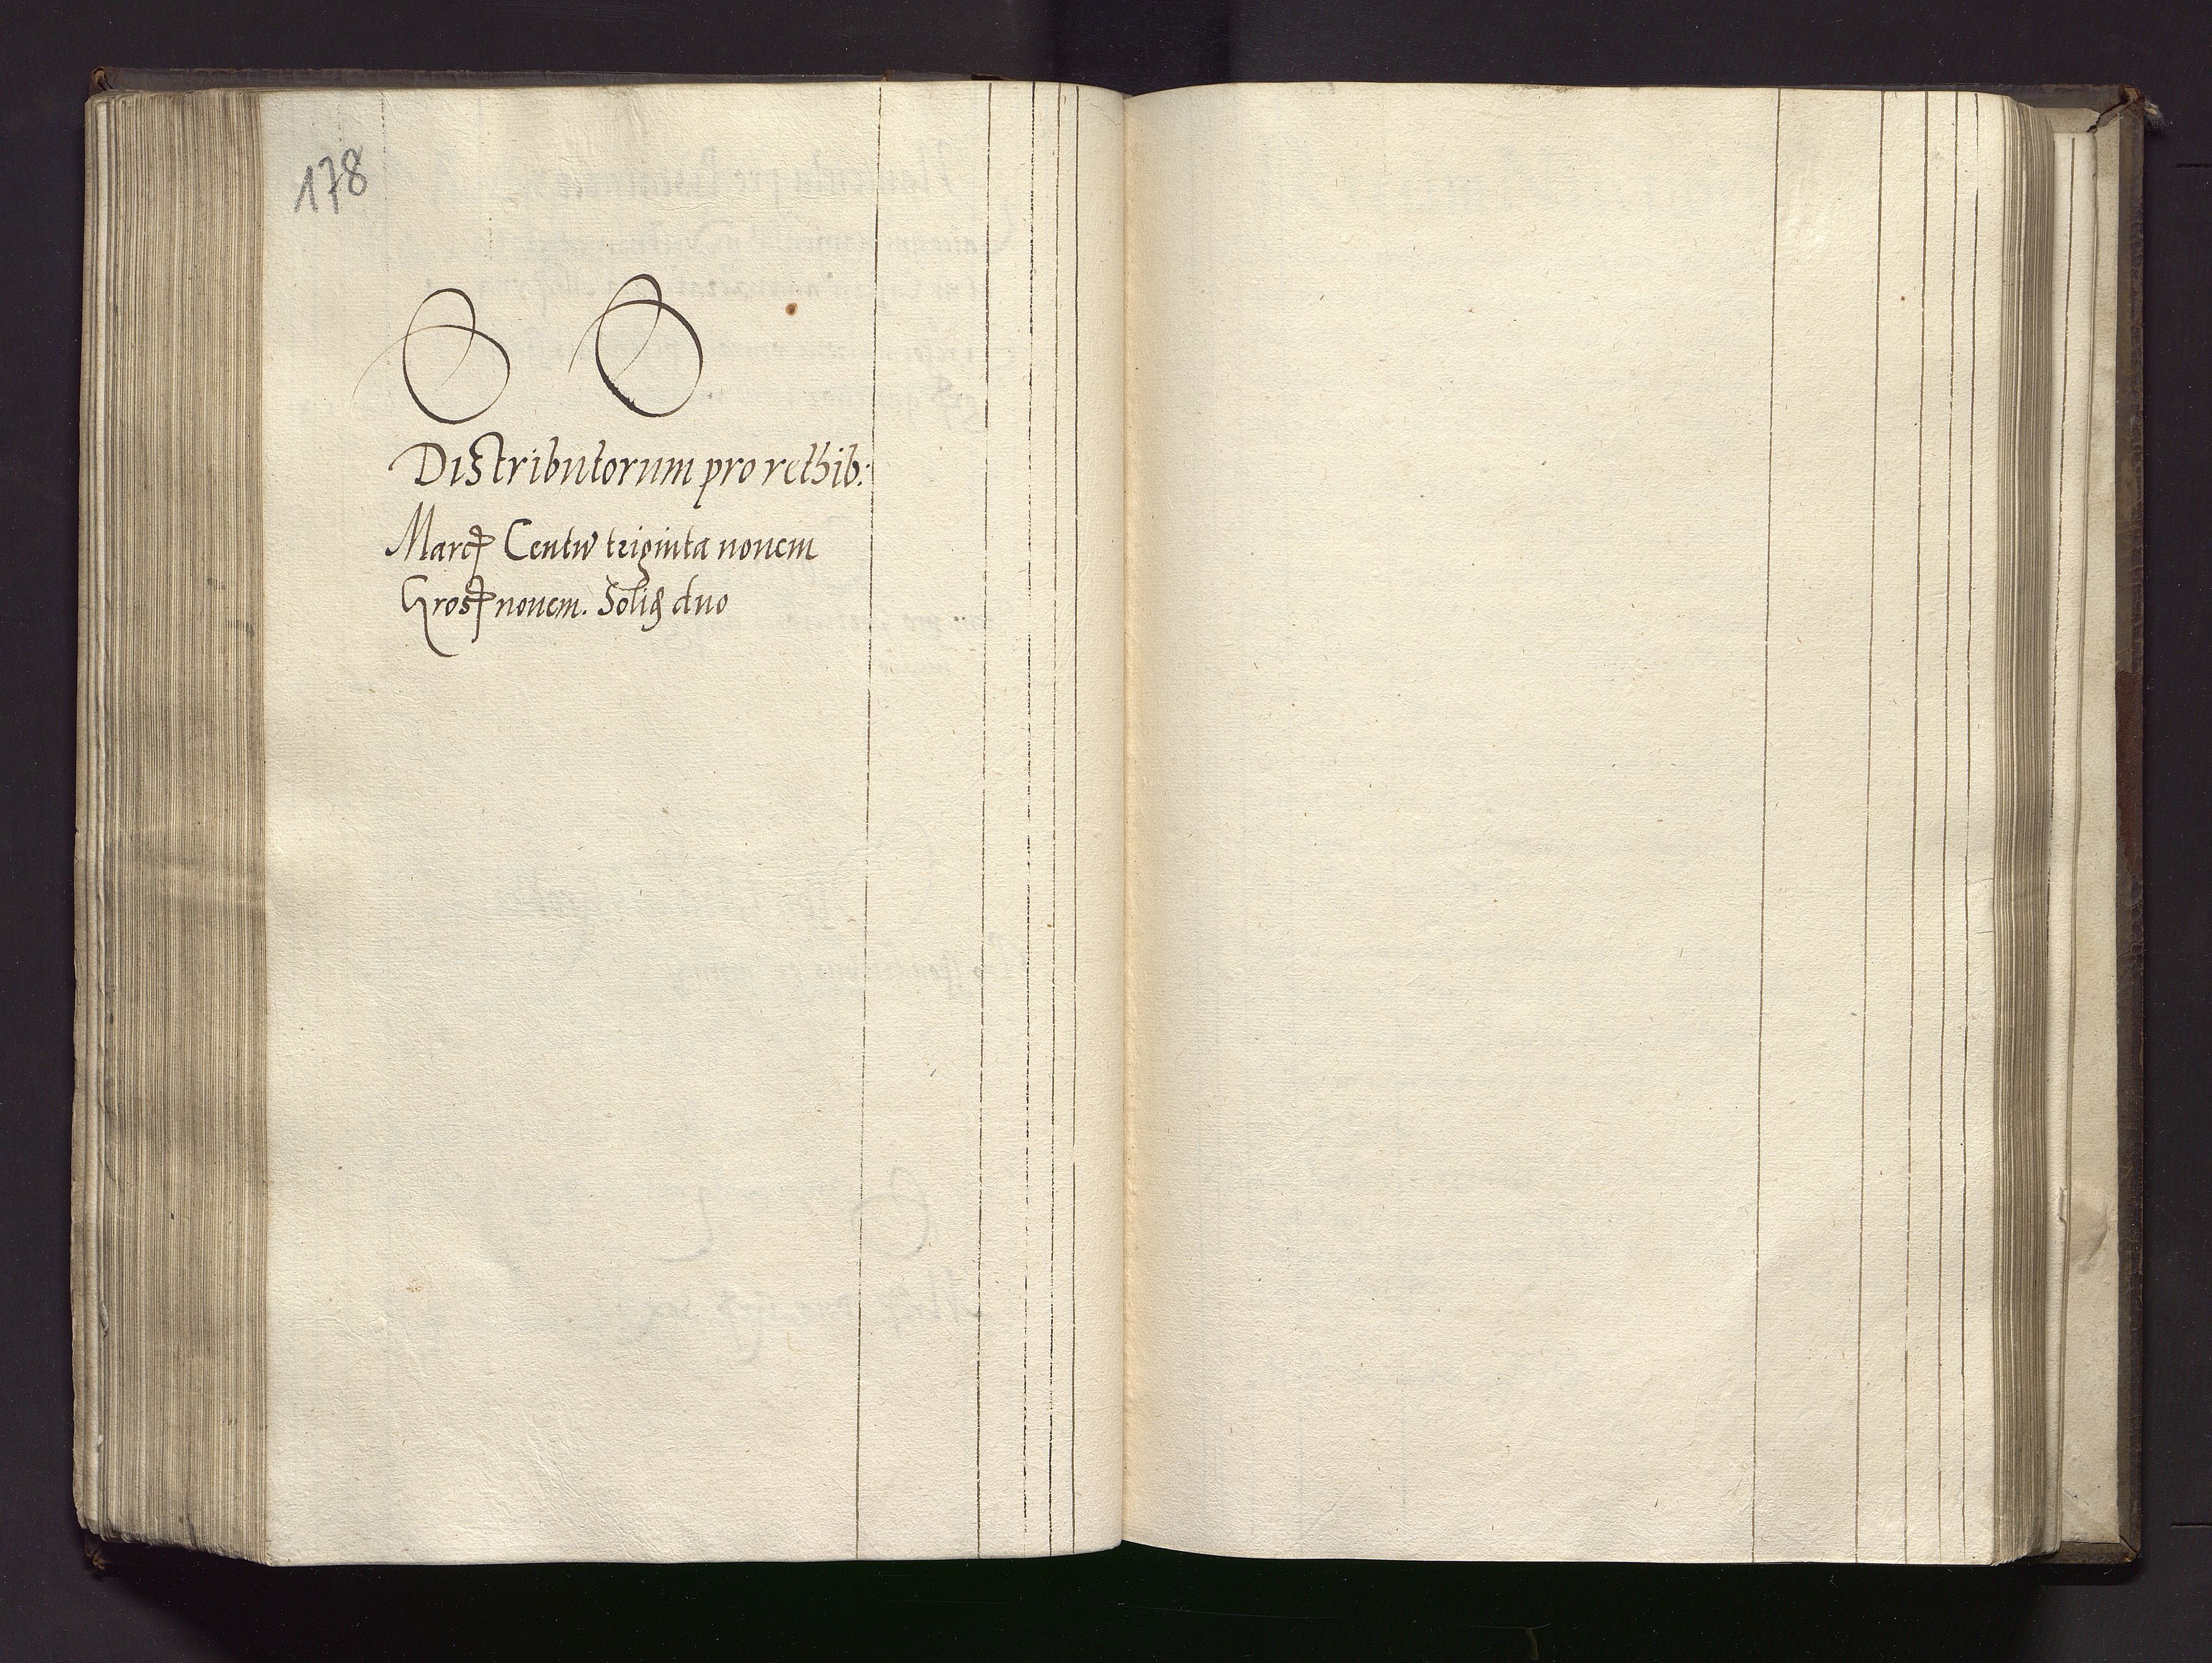 178
Distributorum pro rethib:
Marcȩ Centū triginta nouem
Grosȩ nouem. Solid duo